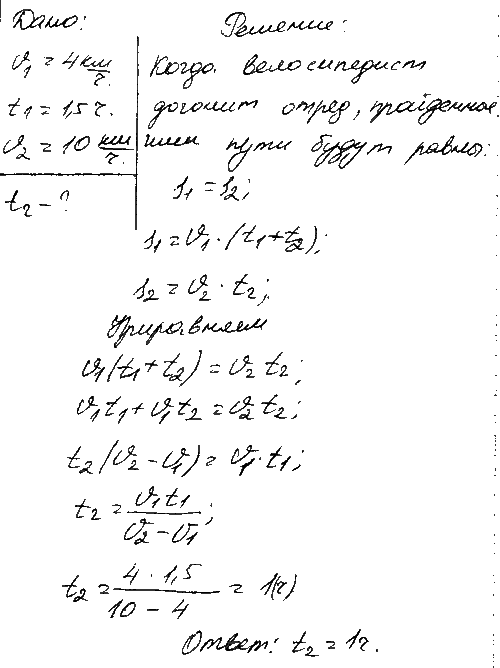 Дано:
υ₁ = 4 км/ч.
t₁ = 1,5 ч.
υ₂ = 10 км/ч.
t₂ - ?
Решение:
Когда велосипедист
догонит отряд, пройденные
ими пути будут равны:
s₁ = s₂;
s₁ = υ₁ · (t₁ + t₂);
s₂ = υ₂ · t₂;
Приравняем
υ₁(t₁ + t₂) = υ₂ t₂;
υ₁t₁ + υ₁t₂ = υ₂t₂;
t₂(υ₂ - υ₁) = υ₁ · t₁;
t₂ = υ₁t₁ / (υ₂ - υ₁);
t₂ = 4 · 1,5 / (10 - 4) = 1(ч)
Ответ: t₂ = 1ч.